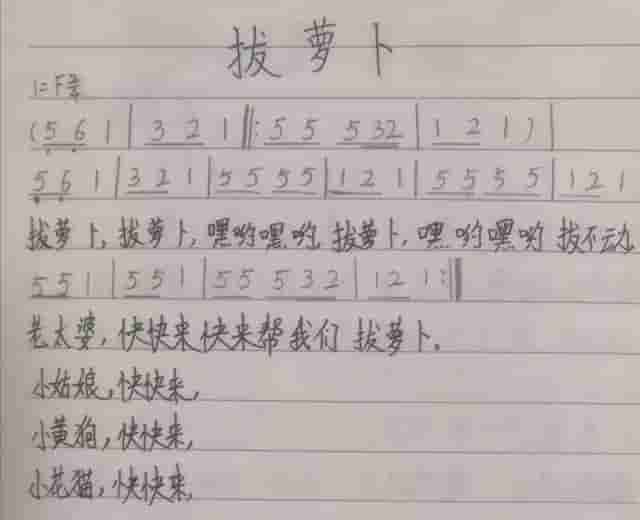 拔萝卜
1=F 2/4
(5 6 1 | 3 2 1 ‖: 5 5 5 32 | 1 2 1 ) |
5 6 1 | 3 2 1 | 5 5 5 5 | 1 2 1 | 5 5 5 5 | 1 2 1
拔萝卜, 拔萝卜, 嘿哟嘿哟 拔萝卜, 嘿哟嘿哟 拔不动
5 5 1 | 5 5 1 | 5 5 5 3 2 | 1 2 1 :‖
老太婆, 快快来 快来帮我们 拔萝卜。
小姑娘, 快快来,
小黄狗, 快快来,
小花猫, 快快来,